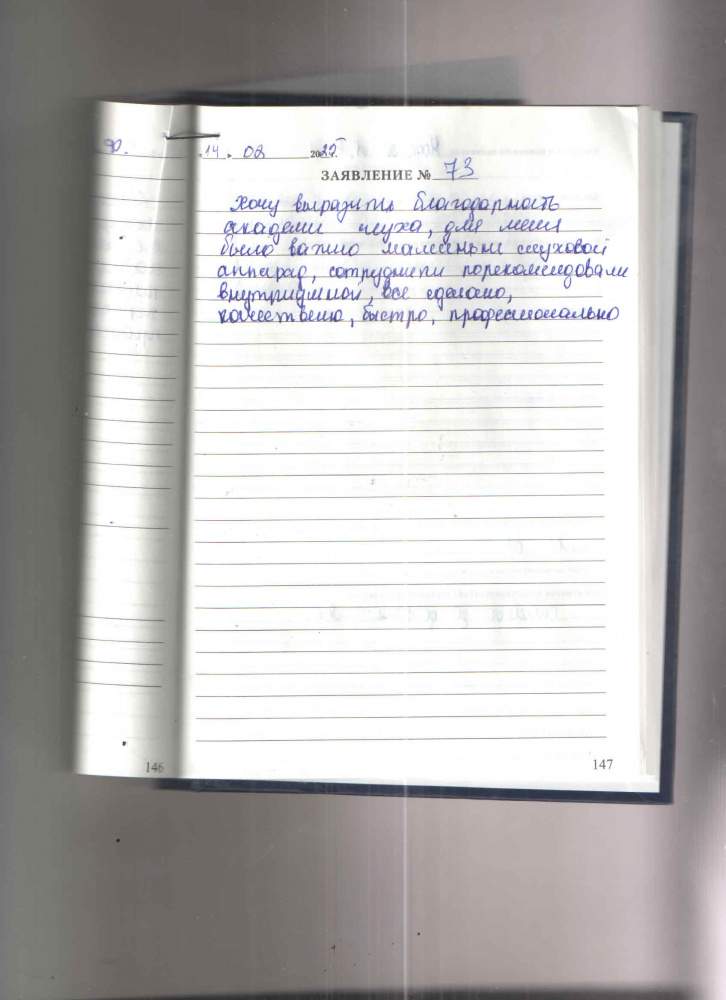 14. 02 2025г.
ЗАЯВЛЕНИЕ № 73
Хочу выразить благодарность
академи слуха, для меня
было важно маленькии слуховой
аппарад, сотрудники порекомендовали
внутриушной, все сделано,
качественно, быстро, професионально
146
147